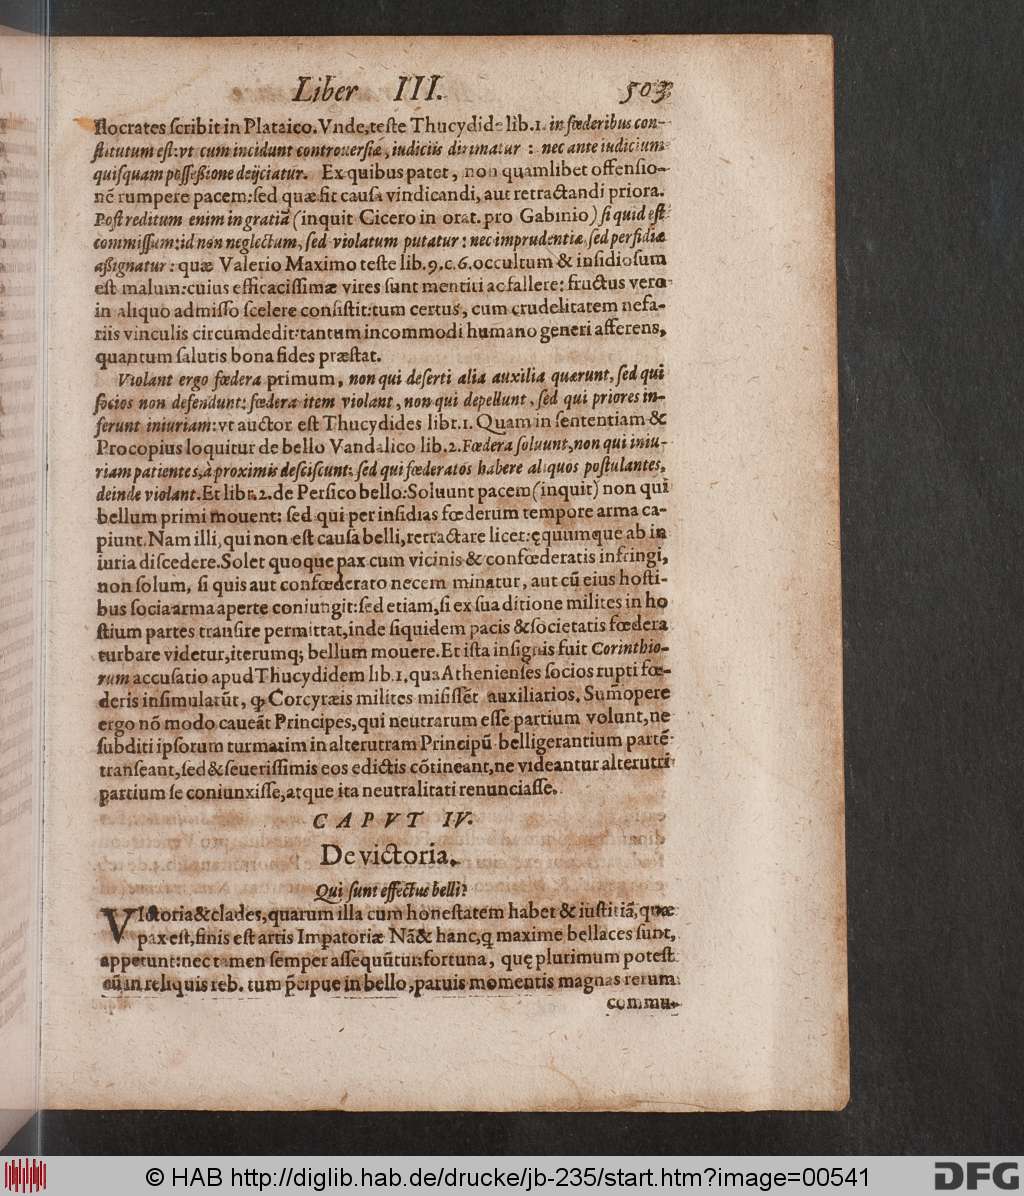 Liber III. 503
ſtocrates ſcribit in Plataico. Vnde, teſte Thucydide lib. 1. in fœderibus con-
ſtitutum eſt: vt cum incidunt controuerſiæ, iudiciis dirimatur : nec ante iudicium
quiſquam poſſeßione deijciatur. Ex quibus patet, non quamlibet offenſio-
nē rumpere pacem: ſed quæ ſit cauſa vindicandi, aut retractandi priora.
Poſt reditum enim in gratiā (inquit Cicero in orat. pro Gabinio) ſi quid eſt
commiſſum: id non neglectum, ſed violatum putatur : nec imprudentiæ, ſed perfidiæ
aßignatur : quæ Valerio Maximo teſte lib. 9. c. 6. occultum & inſidioſum
eſt malum: cuius efficaciſſimæ vires ſunt mentiri ac fallere: fructus vero
in aliquo admiſſo ſcelere conſiſtit: tum certus, cum crudelitatem nefa-
riis vinculis circumdedit: tantum incommodi humano generi afferens,
quantum ſalutis bona fides præſtat.
Violant ergo fœdera primum, non qui deſerti alia auxilia quærunt, ſed qui
ſocios non defendunt: fœdera item violant, non qui depellunt, ſed qui priores in-
ferunt iniuriam: vt auctor eſt Thucydides libr. 1. Quam in ſententiam &
Procopius loquitur de bello Vandalico lib. 2. Fœdera ſoluunt, non qui iniu-
riam patientes, à proximis deſciſcunt: ſed qui fœderatos habere aliquos poſtulantes,
deinde violant. Et libr. 2. de Perſico bello: Soluunt pacem (inquit) non qui
bellum primi mouent: ſed qui per inſidias fœderum tempore arma ca-
piunt. Nam illi, qui non eſt cauſa belli, retractare licet: ęquumque ab in
iuria diſcedere. Solet quoque pax cum vicinis & confœderatis infringi,
non ſolum, ſi quis aut confœderato necem minatur, aut cū eius hoſti-
bus ſocia arma aperte coniungit: ſed etiam, ſi ex ſua ditione milites in ho
ſtium partes tranſire permittat, inde ſiquidem pacis & ſocietatis fœdera
turbare videtur, iterumq; bellum mouere. Et iſta inſignis fuit Corinthio-
rum accuſatio apud Thucydidem lib. 1. qua Athenienſes ſocios rupti fœ-
deris inſimularūt, ꝙ Corcyræis milites miſiſſēt auxiliarios. Summopere
ergo nō modo caueāt Principes, qui neutrarum eſſe partium volunt, ne
ſubditi ipſorum turmatim in alterutram Principū belligerantium partē
tranſeant, ſed & ſeueriſſimis eos edictis cōtineant, ne videantur alterutri
partium ſe coniunxiſſe, atque ita neutralitati renunciaſſe.
CAPVT IV.
De victoria.
Qui ſunt effectus belli?
VIctoria & clades, quarum illa cum honeſtatem habet & iuſtitiā, quæ
pax eſt, finis eſt artis Impatoriæ Nā & hanc, q maxime bellaces ſunt,
appetunt: nec tamen ſemper aſſequūtur: fortuna, quę plurimum poteſt
cū in reliquis reb. tum p̄cipue in bello, paruis momentis magnas rerum
commu-
© HAB http://diglib.hab.de/drucke/jb-235/start.htm?image=00541
DFG